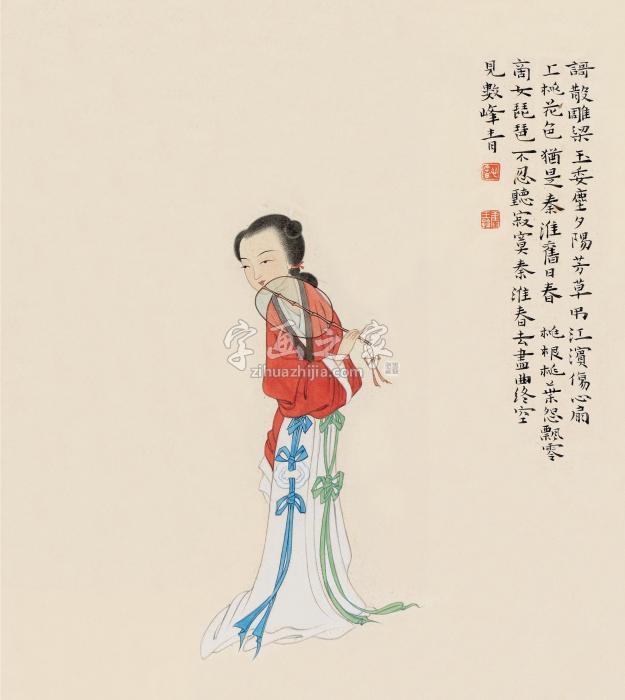 謌散雕梁玉委塵夕陽芳草弔江濱傷心扇
上桃花色猶是秦淮舊日春 桃根桃葉怨飄零
商女琵琶不忍聽寂寞秦淮春去盡曲終空
見數峰青
字画之家
zihuazhijia.com